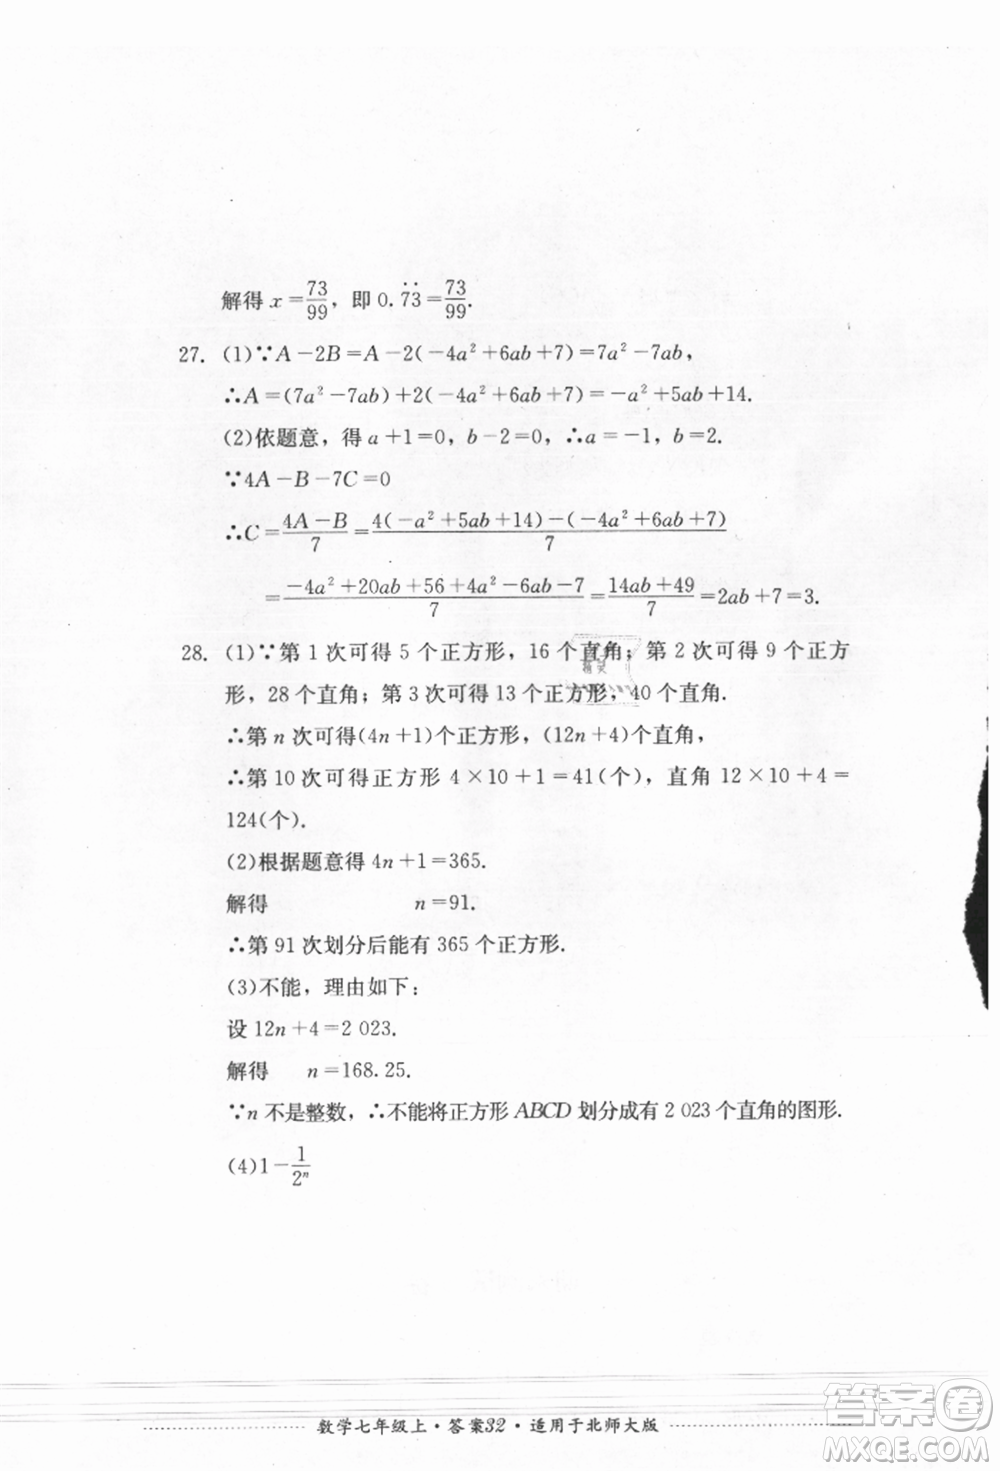 解得 x=73/99，即 0.7̇3̇=73/99.
27. (1)∵A-2B=A-2(-4a²+6ab+7)=7a²-7ab,
∴A=(7a²-7ab)+2(-4a²+6ab+7)=-a²+5ab+14.
(2)依题意，得 a+1=0，b-2=0，∴a=-1，b=2.
∵4A-B-7C=0
∴C=(4A-B)/7=[4(-a²+5ab+14)-(-4a²+6ab+7)]/7
=(-4a²+20ab+56+4a²-6ab-7)/7=(14ab+49)/7=2ab+7=3.
28. (1)∵第 1 次可得 5 个正方形，16 个直角；第 2 次可得 9 个正方
形，28 个直角；第 3 次可得 13 个正方形，40 个直角.
∴第 n 次可得(4n+1)个正方形，(12n+4)个直角，
∴第 10 次可得正方形 4×10+1=41(个)，直角 12×10+4=
124(个).
(2)根据题意得 4n+1=365.
解得 n=91.
∴第 91 次划分后能有 365 个正方形.
(3)不能，理由如下：
设 12n+4=2 023.
解得 n=168.25.
∵n 不是整数，∴不能将正方形 ABCD 划分成有 2 023 个直角的图形.
(4)1-1/2ⁿ
数学七年级上·答案32·适用于北师大版
答案卷
MXQE.COM